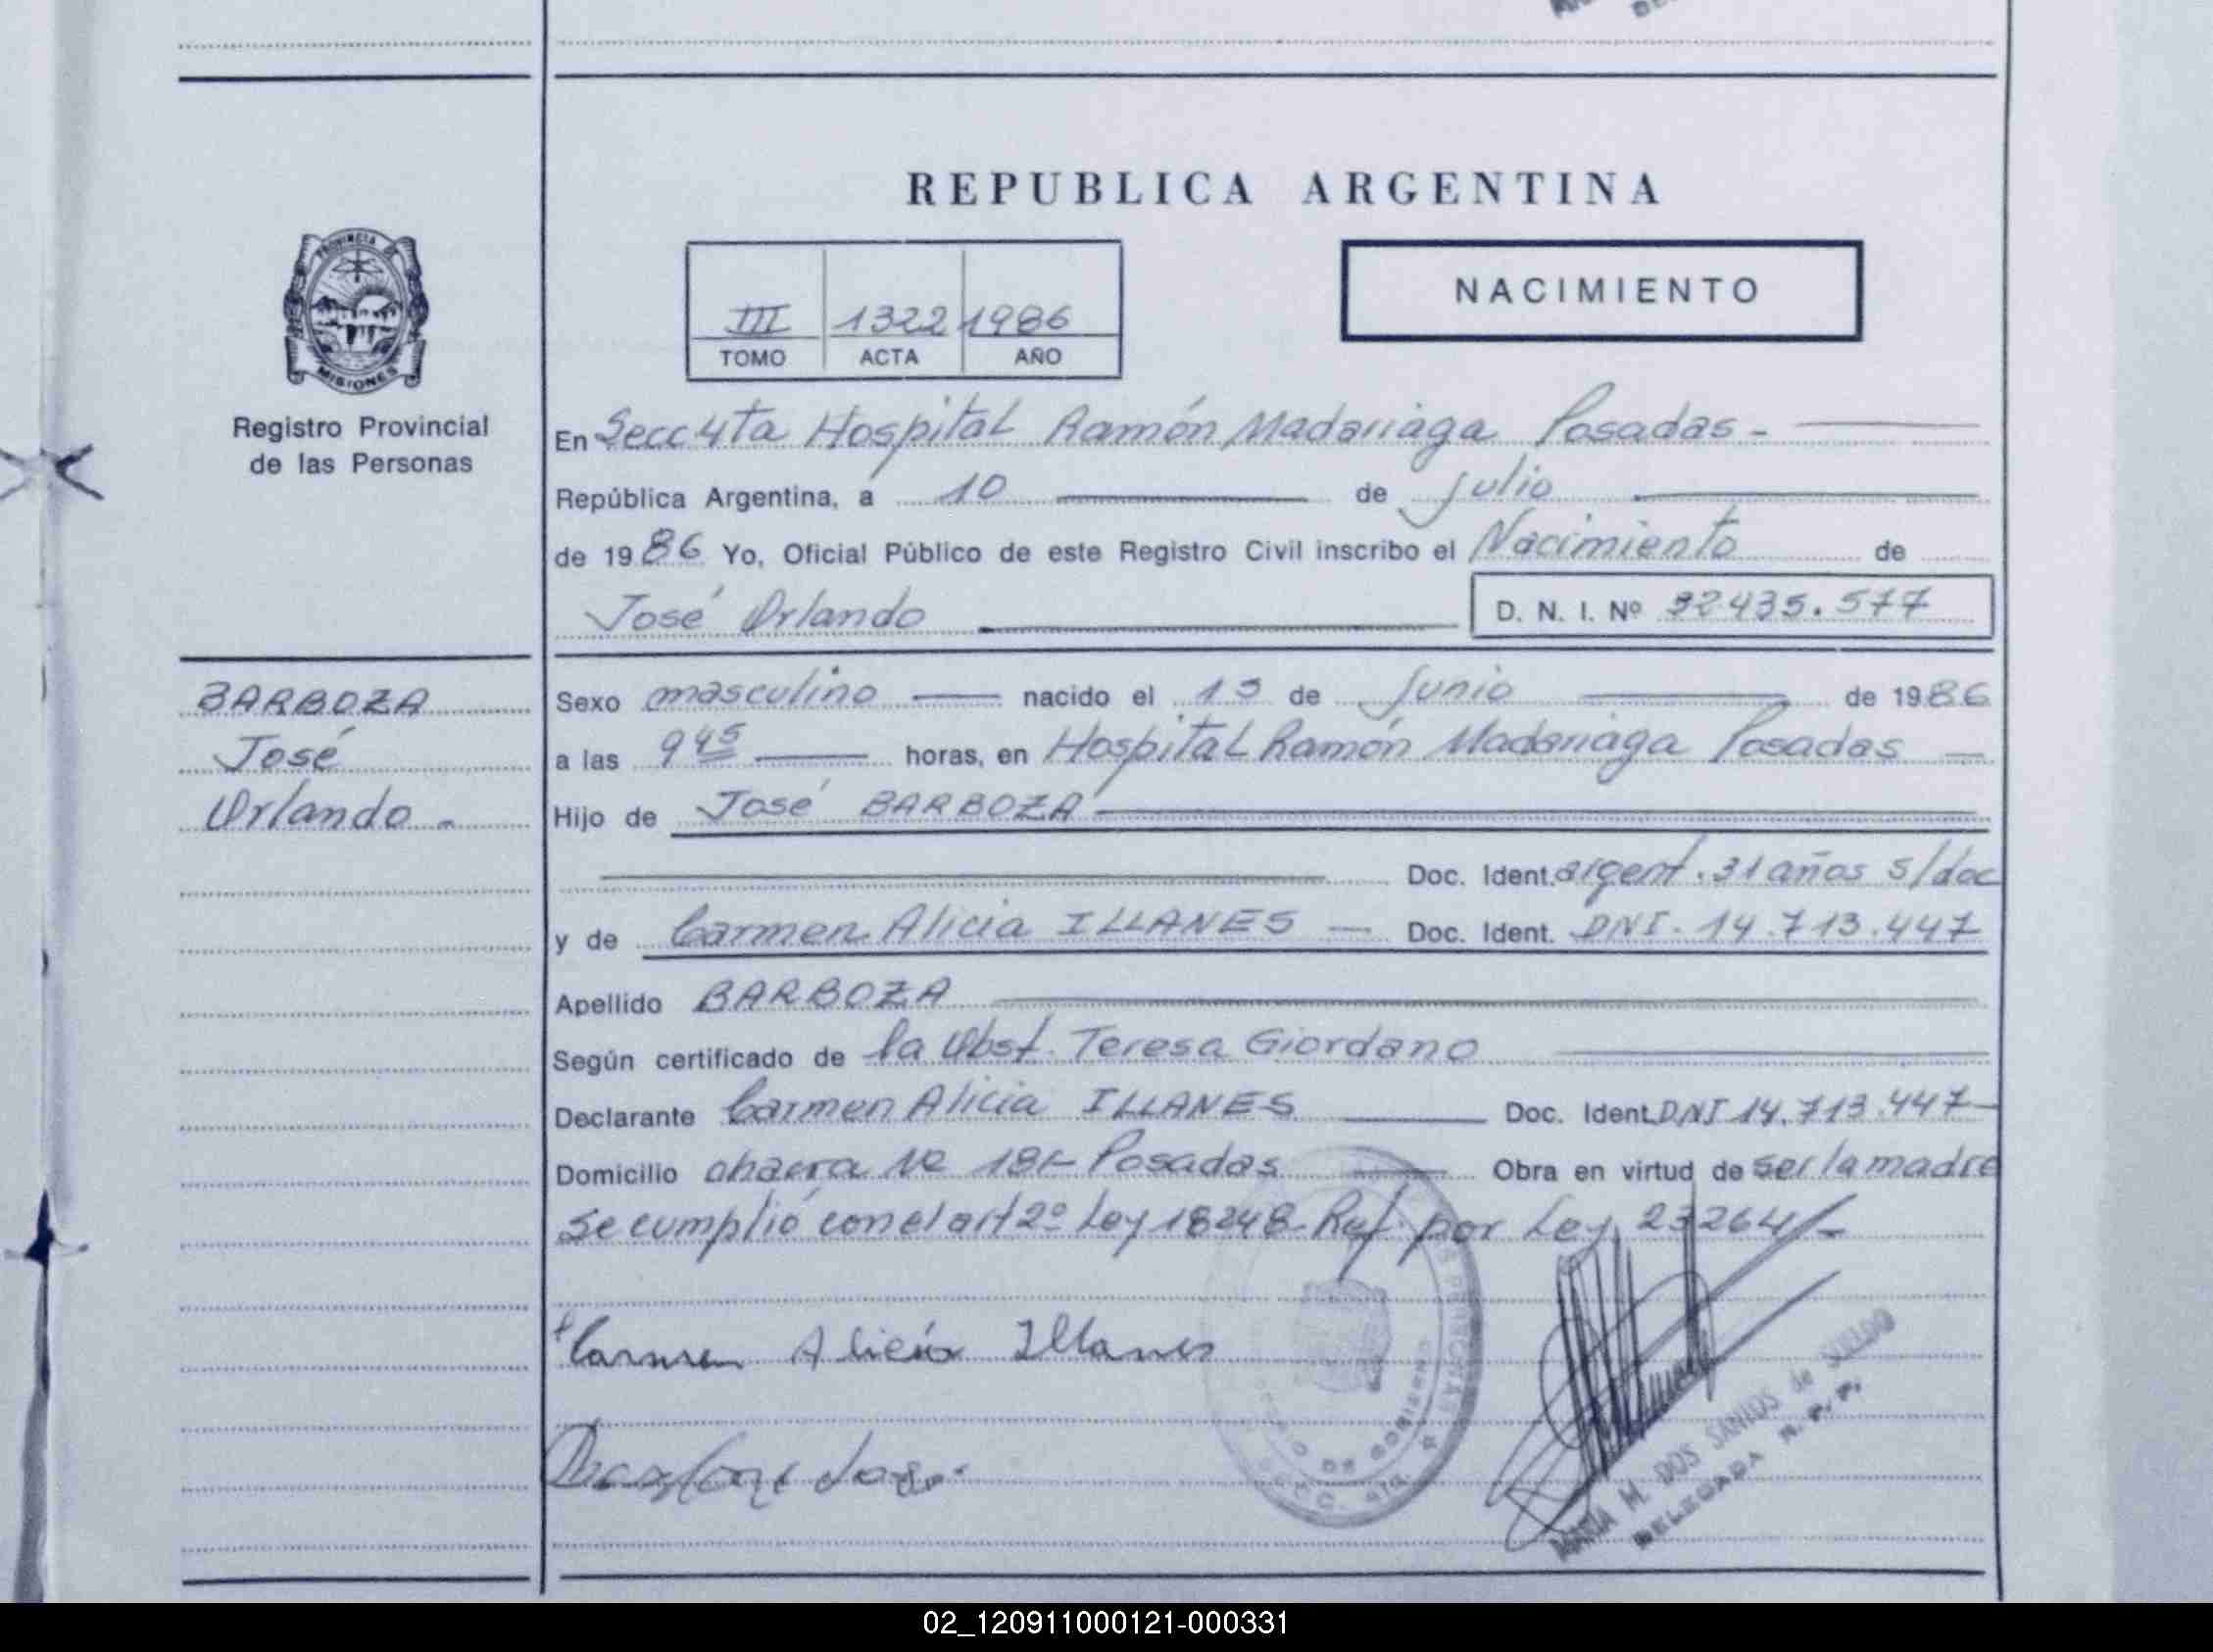 REPUBLICA ARGENTINA
PROVINCIA DE
MISIONES
Registro Provincial
de las Personas
III 1322 1986
TOMO ACTA AÑO
NACIMIENTO
En Secc 4ta Hospital Ramón Madariaga Posadas -
República Argentina, a 10 de Julio
de 1986 Yo, Oficial Público de este Registro Civil inscribo el Nacimiento de
José Orlando D. N. I. Nº 32435.577
BARBOZA
José
Orlando -
Sexo masculino nacido el 13 de Junio de 1986
a las 9 45 horas, en Hospital Ramón Madariaga Posadas
Hijo de José BARBOZA
Doc. Ident. argent. 31 años s/doc
y de Carmen Alicia ILLANES Doc. Ident. DNI. 14.713.447
Apellido BARBOZA
Según certificado de la Obst. Teresa Giordano
Declarante Carmen Alicia ILLANES Doc. Ident. DNI 14.713.447
Domicilio chacra Nº 181- Posadas Obra en virtud de ser la madre
Se cumplió con el art 2º Ley 18248. Ref. por Ley 23264/-
Carmen Alicia Illanes
MARIA M. DOS SANTOS de
DELEGADA R. P. P.
02_120911000121-000331